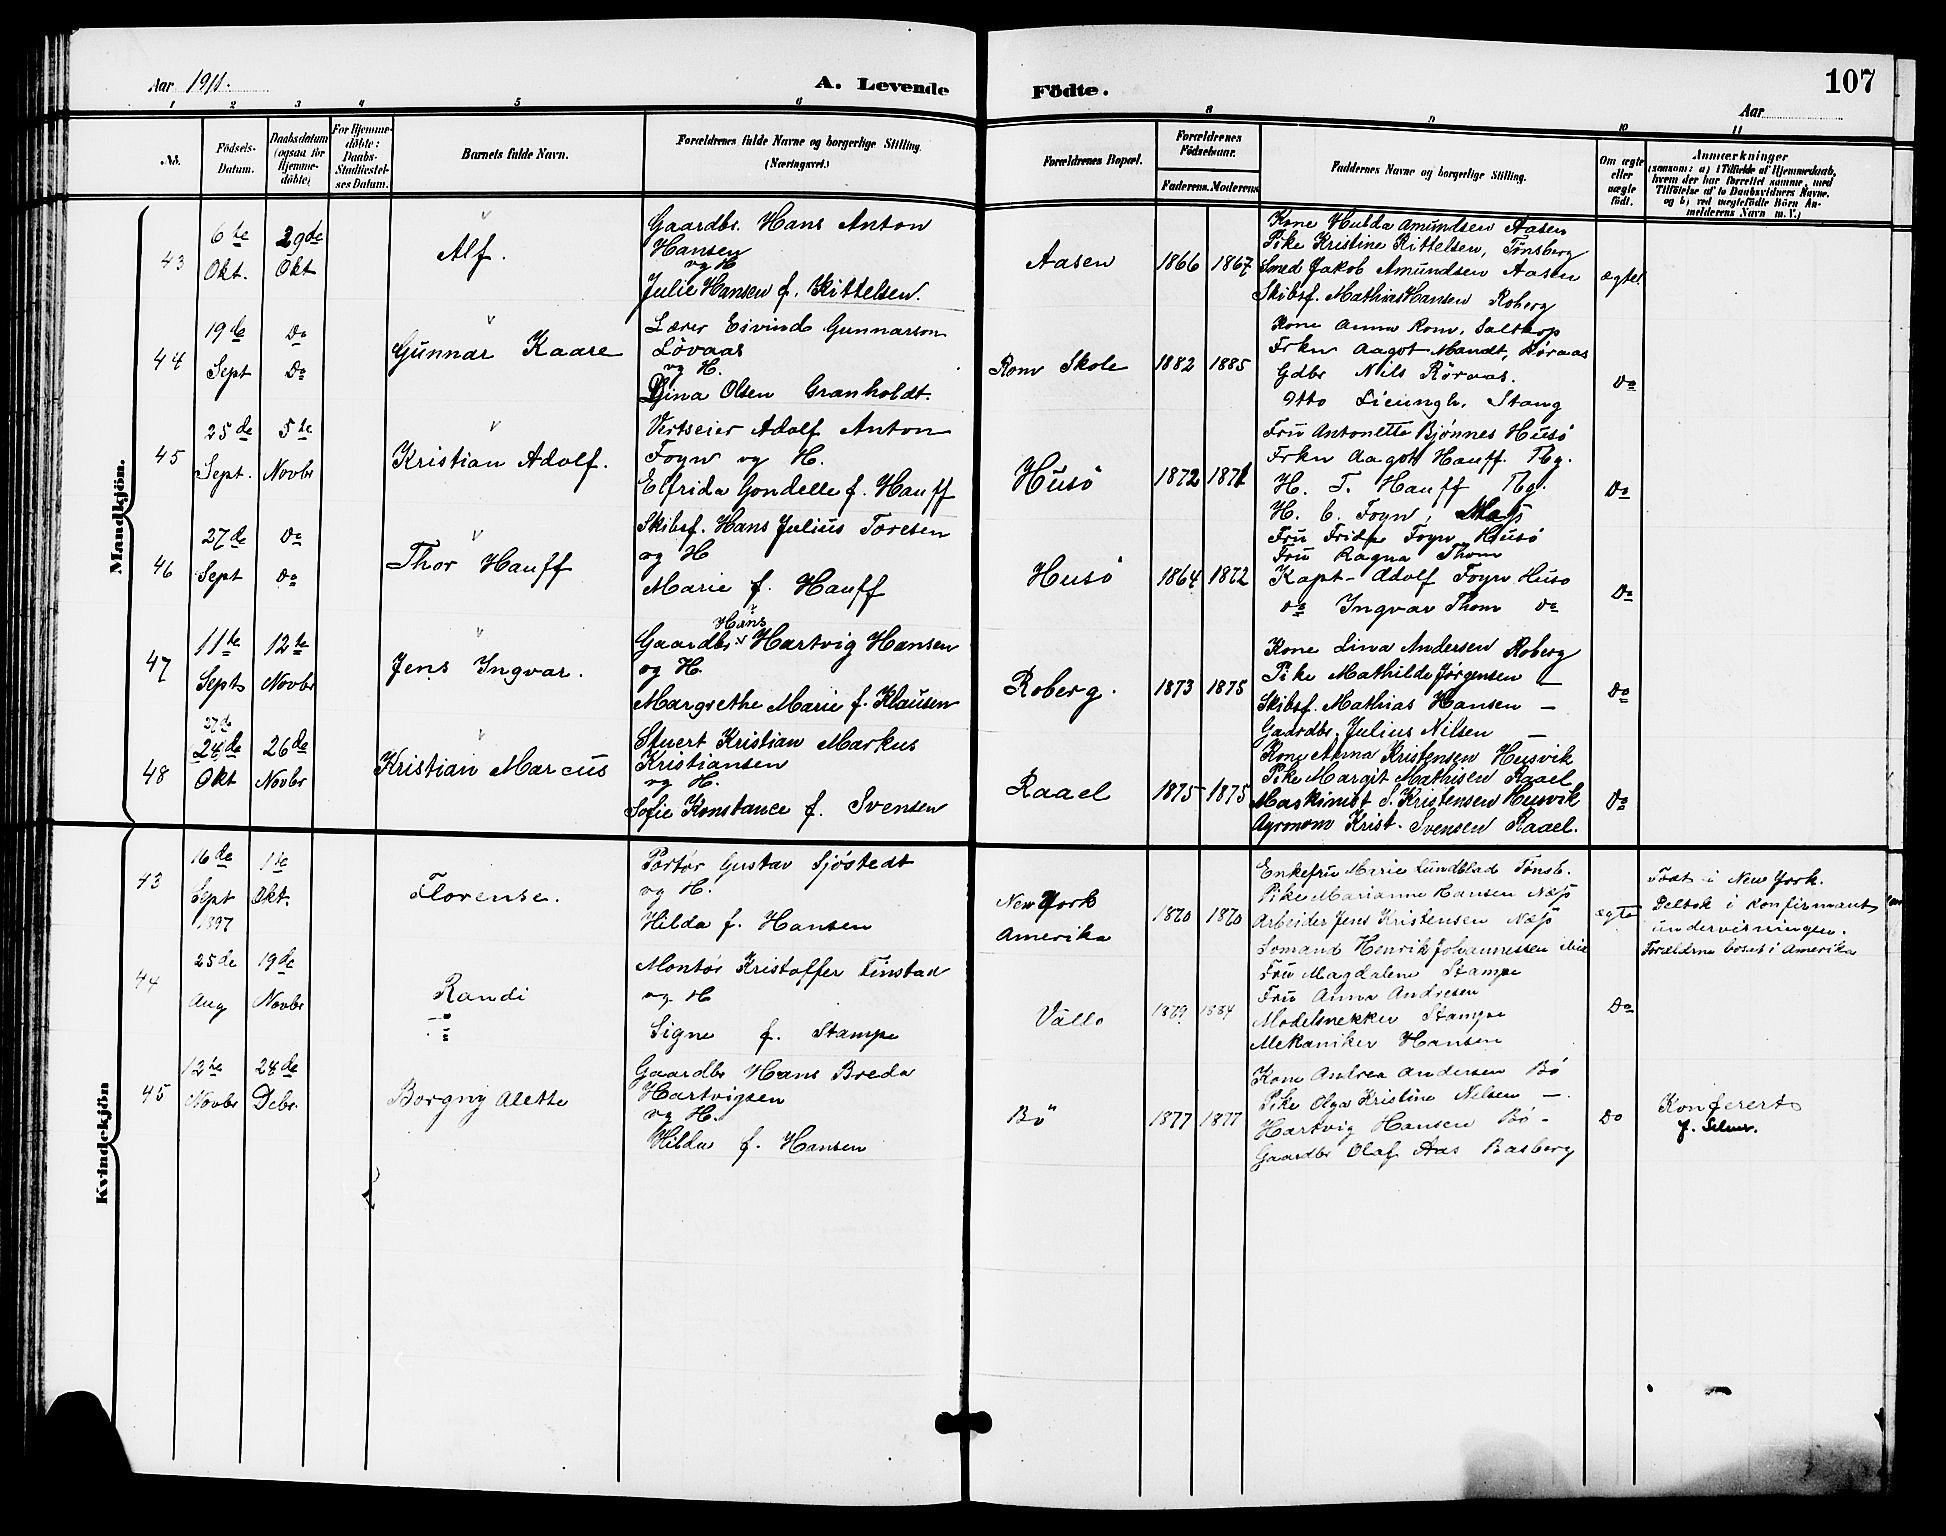 Aar 1911.
A. Levende Födte.
107
Aar
1 2 3 4 5 6 8 9 10 11
No.
Födsels-Datum.
Daabsdatum (ogsaa for Hjemmedöbte)
For Hjemmedöbte: Daabs-Stadfæstelses Datum.
Barnets fulde Navn.
Forældrenes fulde Navne og borgerlige Stilling. (Næringsvei.)
Forældrenes Bopæl.
Forældrenes Födselsaar.
Faderens. Moderens.
Faddernes Navne og borgerlige Stilling.
Om ægte eller uægte födt.
Anmærkninger
(saasom: a) i Tilfælde af Hjemmedaab, hvem der har forrettet samme, med Tilföielse af to Daabsvidners Navne. og b) ved uægtefödte Börn Anmelderens Navn m. V.)
Mandkjön.
43
6te Okt.
29de Okt
Alf.
Gaardbr. Hans Anton
Hansen
og H
Julie Hansen f. Kittelsen.
Aasen
1866 1867
Kone Hulda Amundsen Aasen
Pike Kristine Kittelsen, Tønsberg
Smed Jakob Amundsen Aasen
Skibsf. Mathias Hansen Roberg
ægtef
44
19de Sept
Do Do
Gunnar Kaare
Lærer Eivind Gunnarson
Lövaas
og H.
Gina Olsen Granholdt.
Rom Skole
1882 1885
Kone Anna Rom, Saltkop
Frkn Aagot Mandt, Røraas
Gdbr Nils Röraas.
Otto Lieungh, Stang
Do
45
25de Sept.
5te Novbr
Kristian Adolf.
Vertseier Adolf Anton
Foyn og H.
Elfrida Gondelle f. Hauff
Husö
1872 1871
Fru Antonette Bjönnes Husö
Frkn Aagot Hauff. Tbg.
H. T. Hauff Tbg.
H. C. Foyn,
Do
46
27de Sept
Do Do
Thor Hauff
Skibsf. Hans Julius Toresen
og H
Marie f. Hauff
Husö
1864 1872
Fru Frida Foyn Husö
Fru Ragna Thom
Kapt- Adolf Foyn Husö
Do Ingvar Thom Do
Do
47
11te Sept
12te Novbr
Jens Ingvar.
Hans
Gaardbr. Hartvig Hansen
og H.
Margrethe Marie f. Klausen
Roberg.
1873 1875
Kone Lina Andersen Roberg
Pike Mathilde Jørgensen —
Skibsf. Mathias Hansen —
Gaardbr. Julius Nilsen —
Do
48
27de
24de Okt
26de Novbr
Kristian Marcus
Stuert Kristian Markus
Kristiansen
og H.
Sofie Konstance f. Svensen
Raael
1875 1875
Kone Anna Kristensen Husvik
Pike Margit Mathisen Raael
Maskinist S. Kristensen Husvik
Agronom Krist. Svensen Raael.
Do
Kvindekjön
43
16de Sept 1897
1te Okt.
Florense.
Portør Gustav Sjöstedt
og H.
Hilda f. Hansen
New York
Amerika
1870 1870
Enkefru Marie Lundblad Tønsb.
Pike Marianne Hansen Næsø
Arbeider Jens Kristensen Næsø
Sömand Henrik Johannessen
ægte
Födt i New York.
Deltok i Konfirmant
undervisningen.
Forældrne boset i Amerika
44
25de Aug
19de Novbr
Randi
Montør Kristoffer Finstad
og H
Signe f. Stampe
Vallö
1879 1884
Fru Magdalene Stampe
Fru Anna Andresen
Modelsnekker Stampe
Mekaniker Hansen
Do
45
12te Novbr
28de Debr.
Borgny Alette
Gaardbr Hans Breda
Hartvigsen
og H.
Hilda f. Hansen
Bö
1877 1877
Kone Andrea Andersen Bö
Pike Olga Kristine Nilsen —
Hartvig Hansen Bö -
Gaardbr Olaf Aas Basberg
Do
Konferert